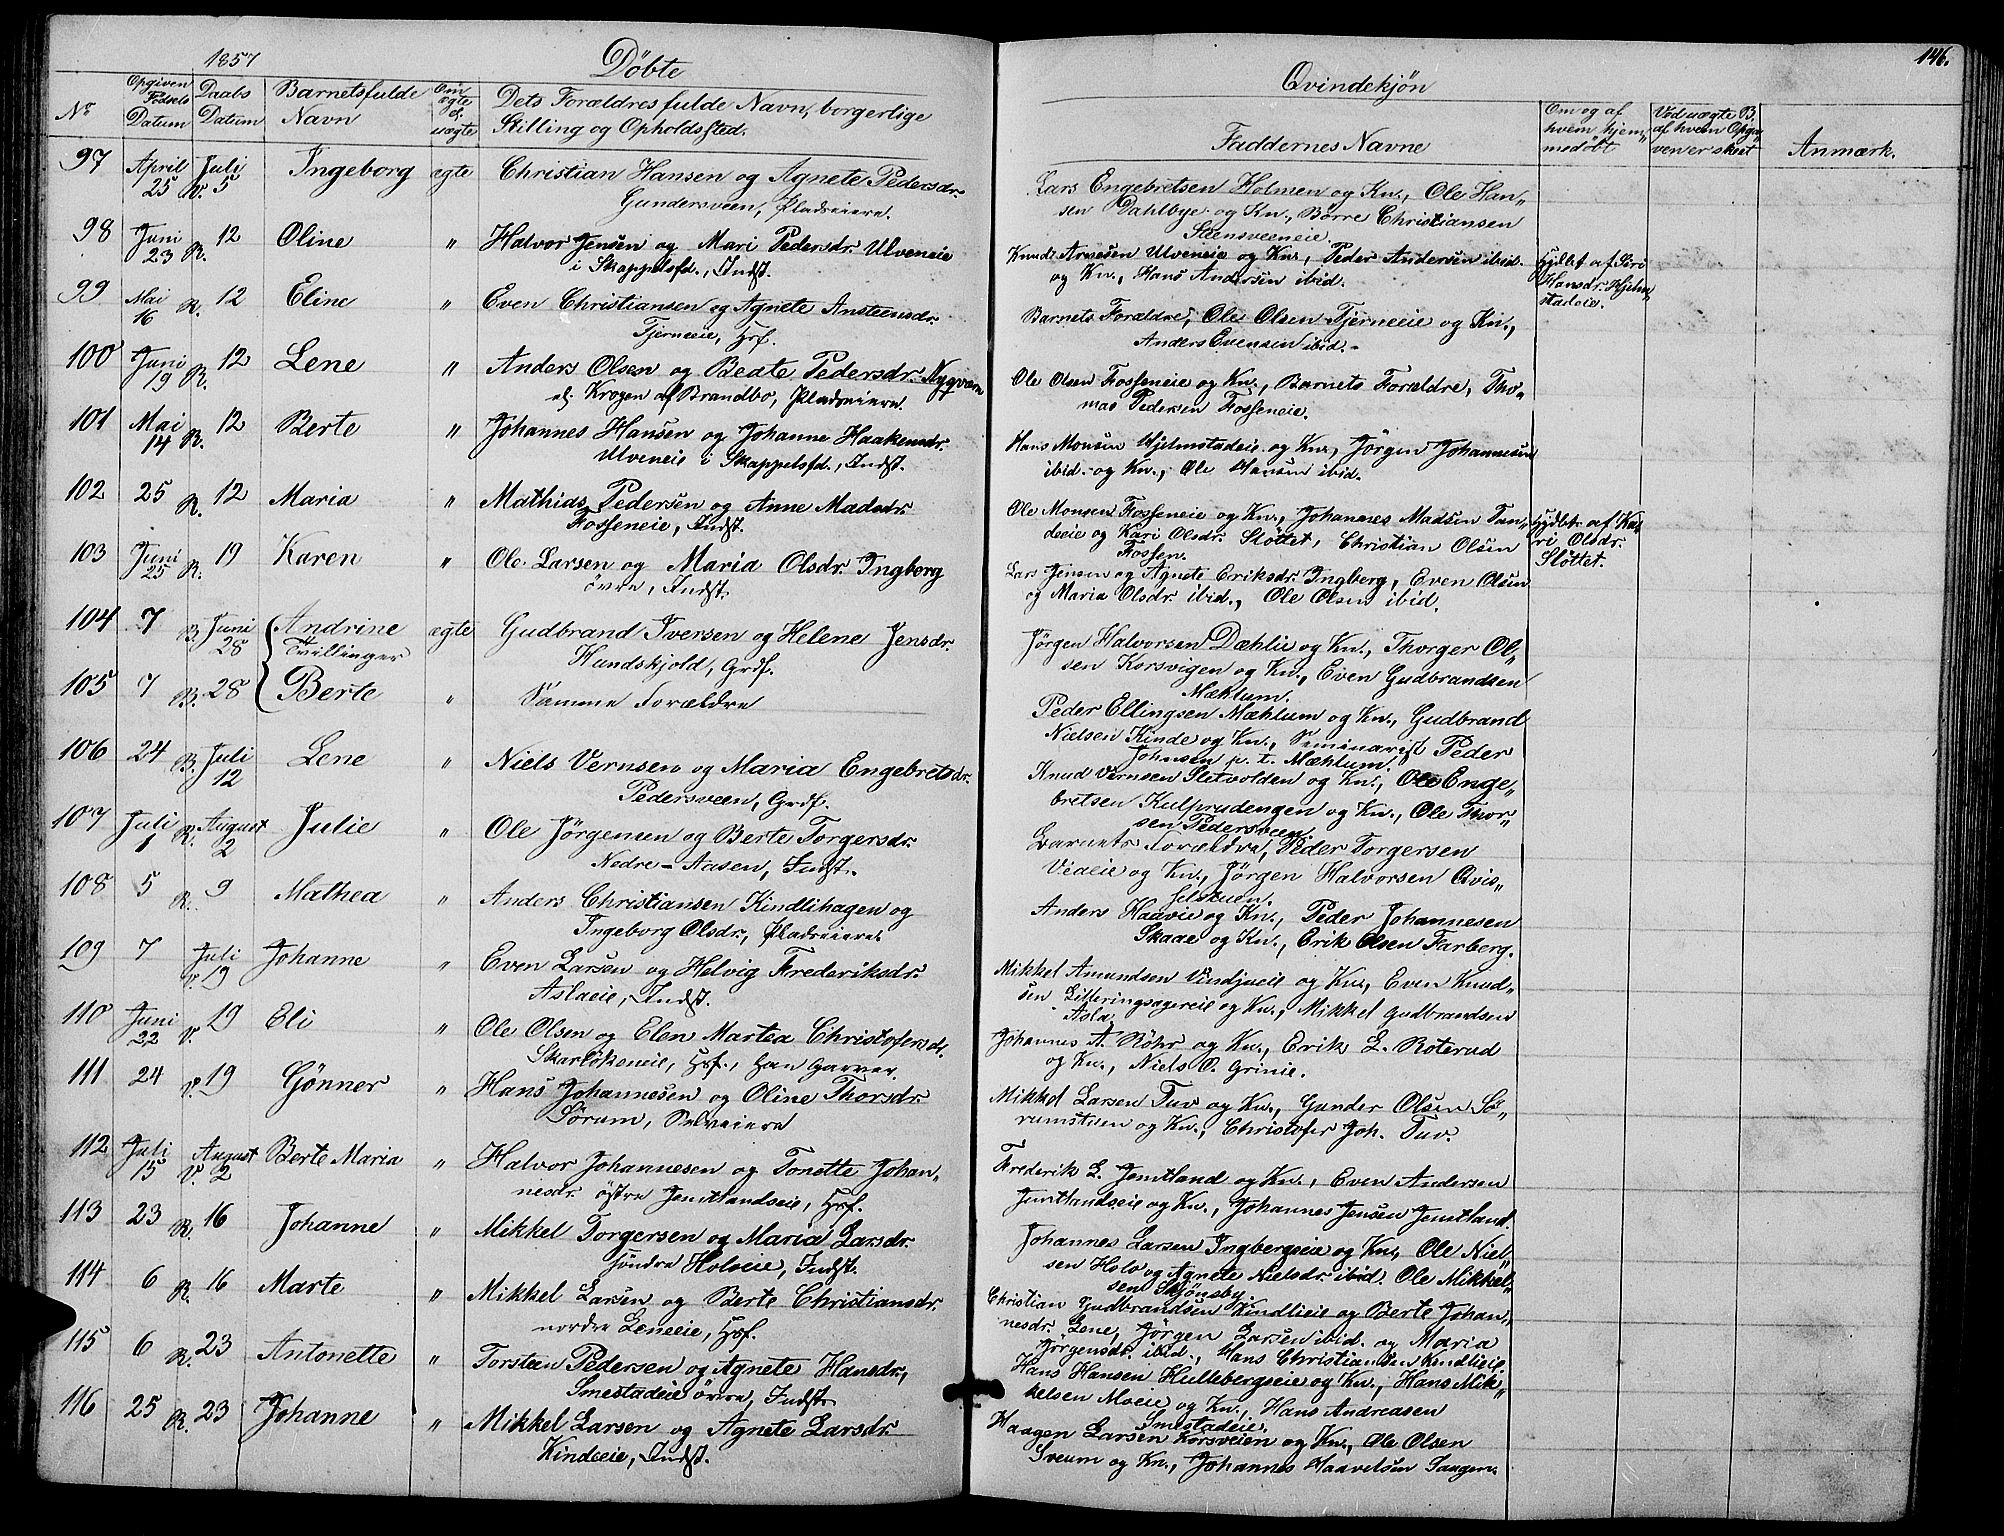 1857
Döbte
Opgiven Fødsels Datum
Daabs Datum
Barnetsfulde Navn
Om ægte el. uægte
Dets Forældres fulde Navn, borgerlige
Stilling og Opholdssted.
No
97 April 25 Juli V. 5 Ingeborg ægte Christian Hansen og Agnete Pedersdr.
Gundersveen, Pladseiere.
98 Juni 23 R. 12 Oline " Halvor Jensen og Mari Pedersdr. Ulveneie
i Skappelsfd., Indst.
99 Mai 16 R. 12 Eline " Even Christiansen og Agnete Ansteensdr.
Tjerneeie, Hsf.
100 Juni 19 R. 12 Lene " Anders Olsen og Beate Pedersdr. Nygveen
el. Krogen af Brandbo, Pladseiere.
101 Mai 14 R. 12 Berte " Johannes Hansen og Johanne Haakensdr.
Ulveneie i Skappelsfd., Indst.
102 25 R. 12 Maria " Mathias Pedersen og Anne Madsdr.
Fosseneie, Indst.
103 Juni 25 R. 19 Karen " Ole Larsen og Maria Olsdr. Ingberg
övre, Indst.
104 7 B. Juni 28 Andrine ægte Gudbrand Iversen og Helene Jensdr.
Tvillinger Hundskjold, Grdf.
105 7 B. 28 Berte " Samme Forældre
106 24 B. Juli 12 Lene " Niels Vernsen og Maria Engebretsdr.
Pedersveen, Grdf.
107 Juli 1 R. August 2 Julie " Ole Jörgensen og Berte Torgersdr.
Nedre-Aasen, Indst.
108 5 R. 9 Mathea " Anders Christiansen Kindlihagen og
Ingeborg Olsdr., Pladseiere.
109 7 Juli V. 19 Johanne " Even Larsen og Helvig Frederiksdr.
Aslaeie, Indst.
110 Juni 22 V. 19 Eli " Ole Olsen og Elen Martea Christofersdr.
Skarlökeneie, Hsf., Han Garver.
111 24 V. 19 Gönner " Hans Johannesen og Oline Thorsdr.
Sörum, Selveiere
112 Juli 15 August V. 2 Berte Maria " Halvor Johannesen og Tonette Johan"
nesdr. östre Jemtlandseie, Hsf.
113 23 R. 16 Johanne " Mikkel Torgersen og Maria Larsdr.
söndre Holoeie, Indst.
114 6 R. 16 Marte " Mikkel Larsen og Berte Christiansdr.
nordre Leneeie, Hsf.
115 6 R. 23 Antonette " Torsten Pedersen og Agnete Hansdr.,
Smestadeie övre, Indst.
116 25 R. 23 Johanne " Mikkel Larsen og Agnete Larsdr.
Kindeeie, Indst.
146.
Qvindekjön
Faddernes Navne
Om og af hvem hjem" medöbt
Ved uægte B. af hvem Opgi" ven er skeet
Anmærk.
Lars Engebretsen Holmen og Kn., Ole Han"
sen Dahlbye og Kn., Börre Christiansen
Steensveeneie.
Knudt Arnesen Ulveneie og Kn., Peder Andersen ibid.
og Kn., Hans Andersen ibid.
Hjdbt af Siri
Hansdr. Hjelm"
stadeie.
Barnets Forældre, Ole Olsen Tjerneeie og Kn.,
Anders Evensen ibid.
Ole Olsen Fosseneie og Kn., Barnets Forældre, Tho"
mas Pedersen Fosseneie.
Hans Monsen Hjelmstadeie og Kn., Jörgen Johannesen
ibid. og Kn., Ole Hansen ibid.
Ole Monsen Fosseneie og Kn., Johannes Madsen Tan"
deeie og Kari Olsdr. Slöttet, Christian Olsen
Fossen.
Hjdbt. af Ka"
ri Olsdr.
Slöttet.
Lars Jensen og Agnete Eriksdr. Ingberg, Even Olsen
og Maria Olsdr. ibid., Ole Olsen ibid.
Jörgen Halvorsen Dæhlie og Kn., Thorger Ol"
sen Korsvigen og Kn., Even Gudbrandsen
Mæhlum.
Peder Ellingsen Mæhlum og Kn., Gudbrand
Nielsen Kinde og Kn., Seminarist Peder
Johnsen p. t. Mæhlum.
Knud Vernsen Sletvolden og Kn., Ole Enge"
bretsen Kulprudengen og Kn., Ole Thor"
sen Pedersveen.
Barnets Forældre, Peder Torgersen
Vieeie og Kn., Jörgen Halvorsen Qvis"
selstuen.
Anders Haavie og Kn., Peder Johannesen
Skaae og Kn., Erik Olsen Farberg.
Mikkel Amundsen Vindjueie og Kn., Even Knud"
sen Litteringsagereie og Kn., Mikkel Gudbrandsen
Asla.
Johannes A. Röhr og Kn., Erik L. Roterud
og Kn., Niels O. Grinie.
Mikkel Larsen Tuv og Kn., Gunder Olsen Sö"
rumstuen og Kn., Christofer Joh. Tuv.
Frederik L. Jemtland og Kn., Even Andersen
Jemtlandseie og Kn., Johannes Jensen Jemtland.
Johannes Larsen Ingbergseie og Kn., Ole Niel"
sen Holo og Agnete Nielsdr. ibid. Ole Mikkel"
sen Skjönsby.
Christian Gudbrandsen Kindlieie og Berte Johan"
nesdr. Lene, Jörgen Larsen ibid. og Maria
Jörgensdr. ibid., Hans Christiansen Kindlieie
Hans Hansen Hullebergseie og Kn., Hans Mik"
kelsen Moeie og Kn., Hans Andreasen
Smestadeie.
Haagen Larsen Korsveien og Kn., Ole Olsen
Sveum og Kn., Johannes Haavelsen Saugen.